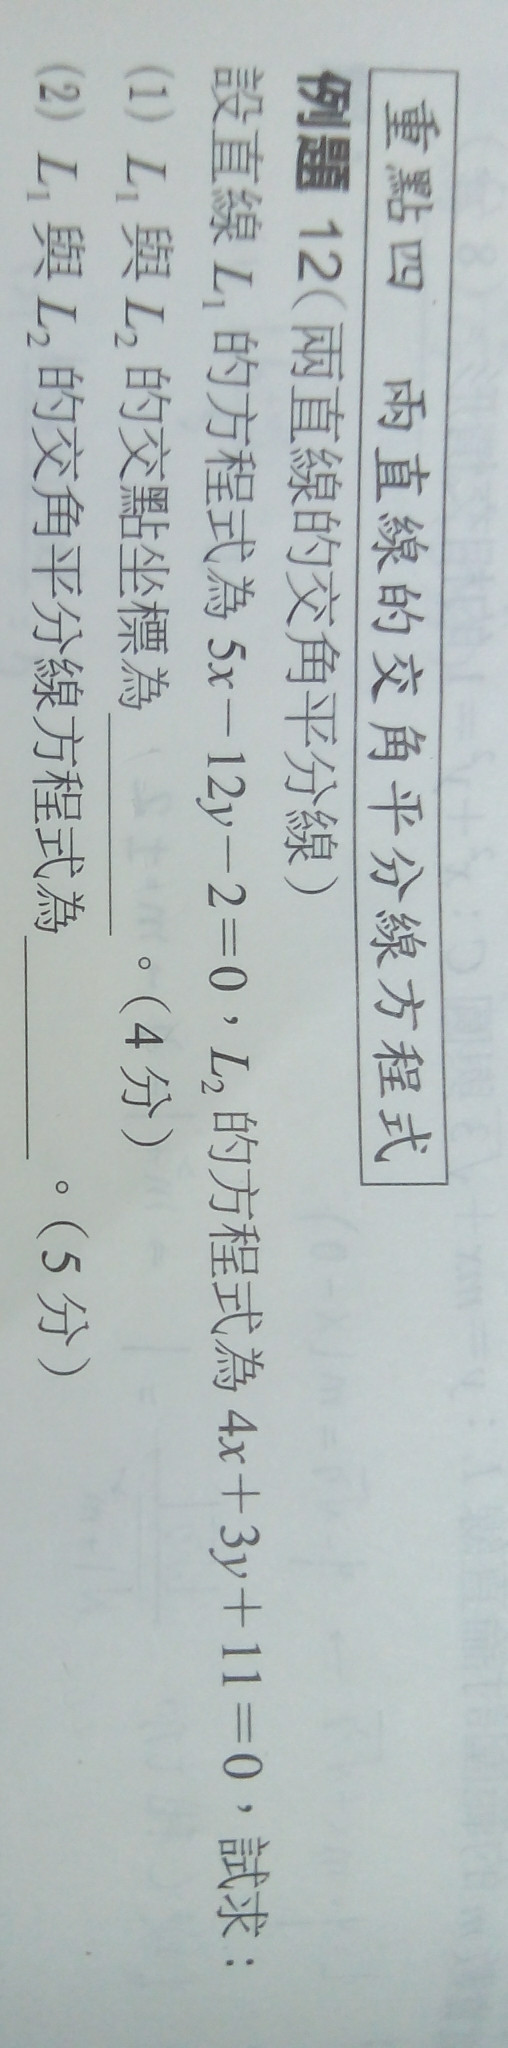 重點四 兩直線的交角平分線方程式
例題 12(兩直線的交角平分線)
設直線 L₁ 的方程式為 5x－12y－2＝0，L₂ 的方程式為 4x＋3y＋11＝0，試求：
(1) L₁ 與 L₂ 的交點坐標為＿＿＿＿。(4 分)
(2) L₁ 與 L₂ 的交角平分線方程式為＿＿＿＿。(5 分)